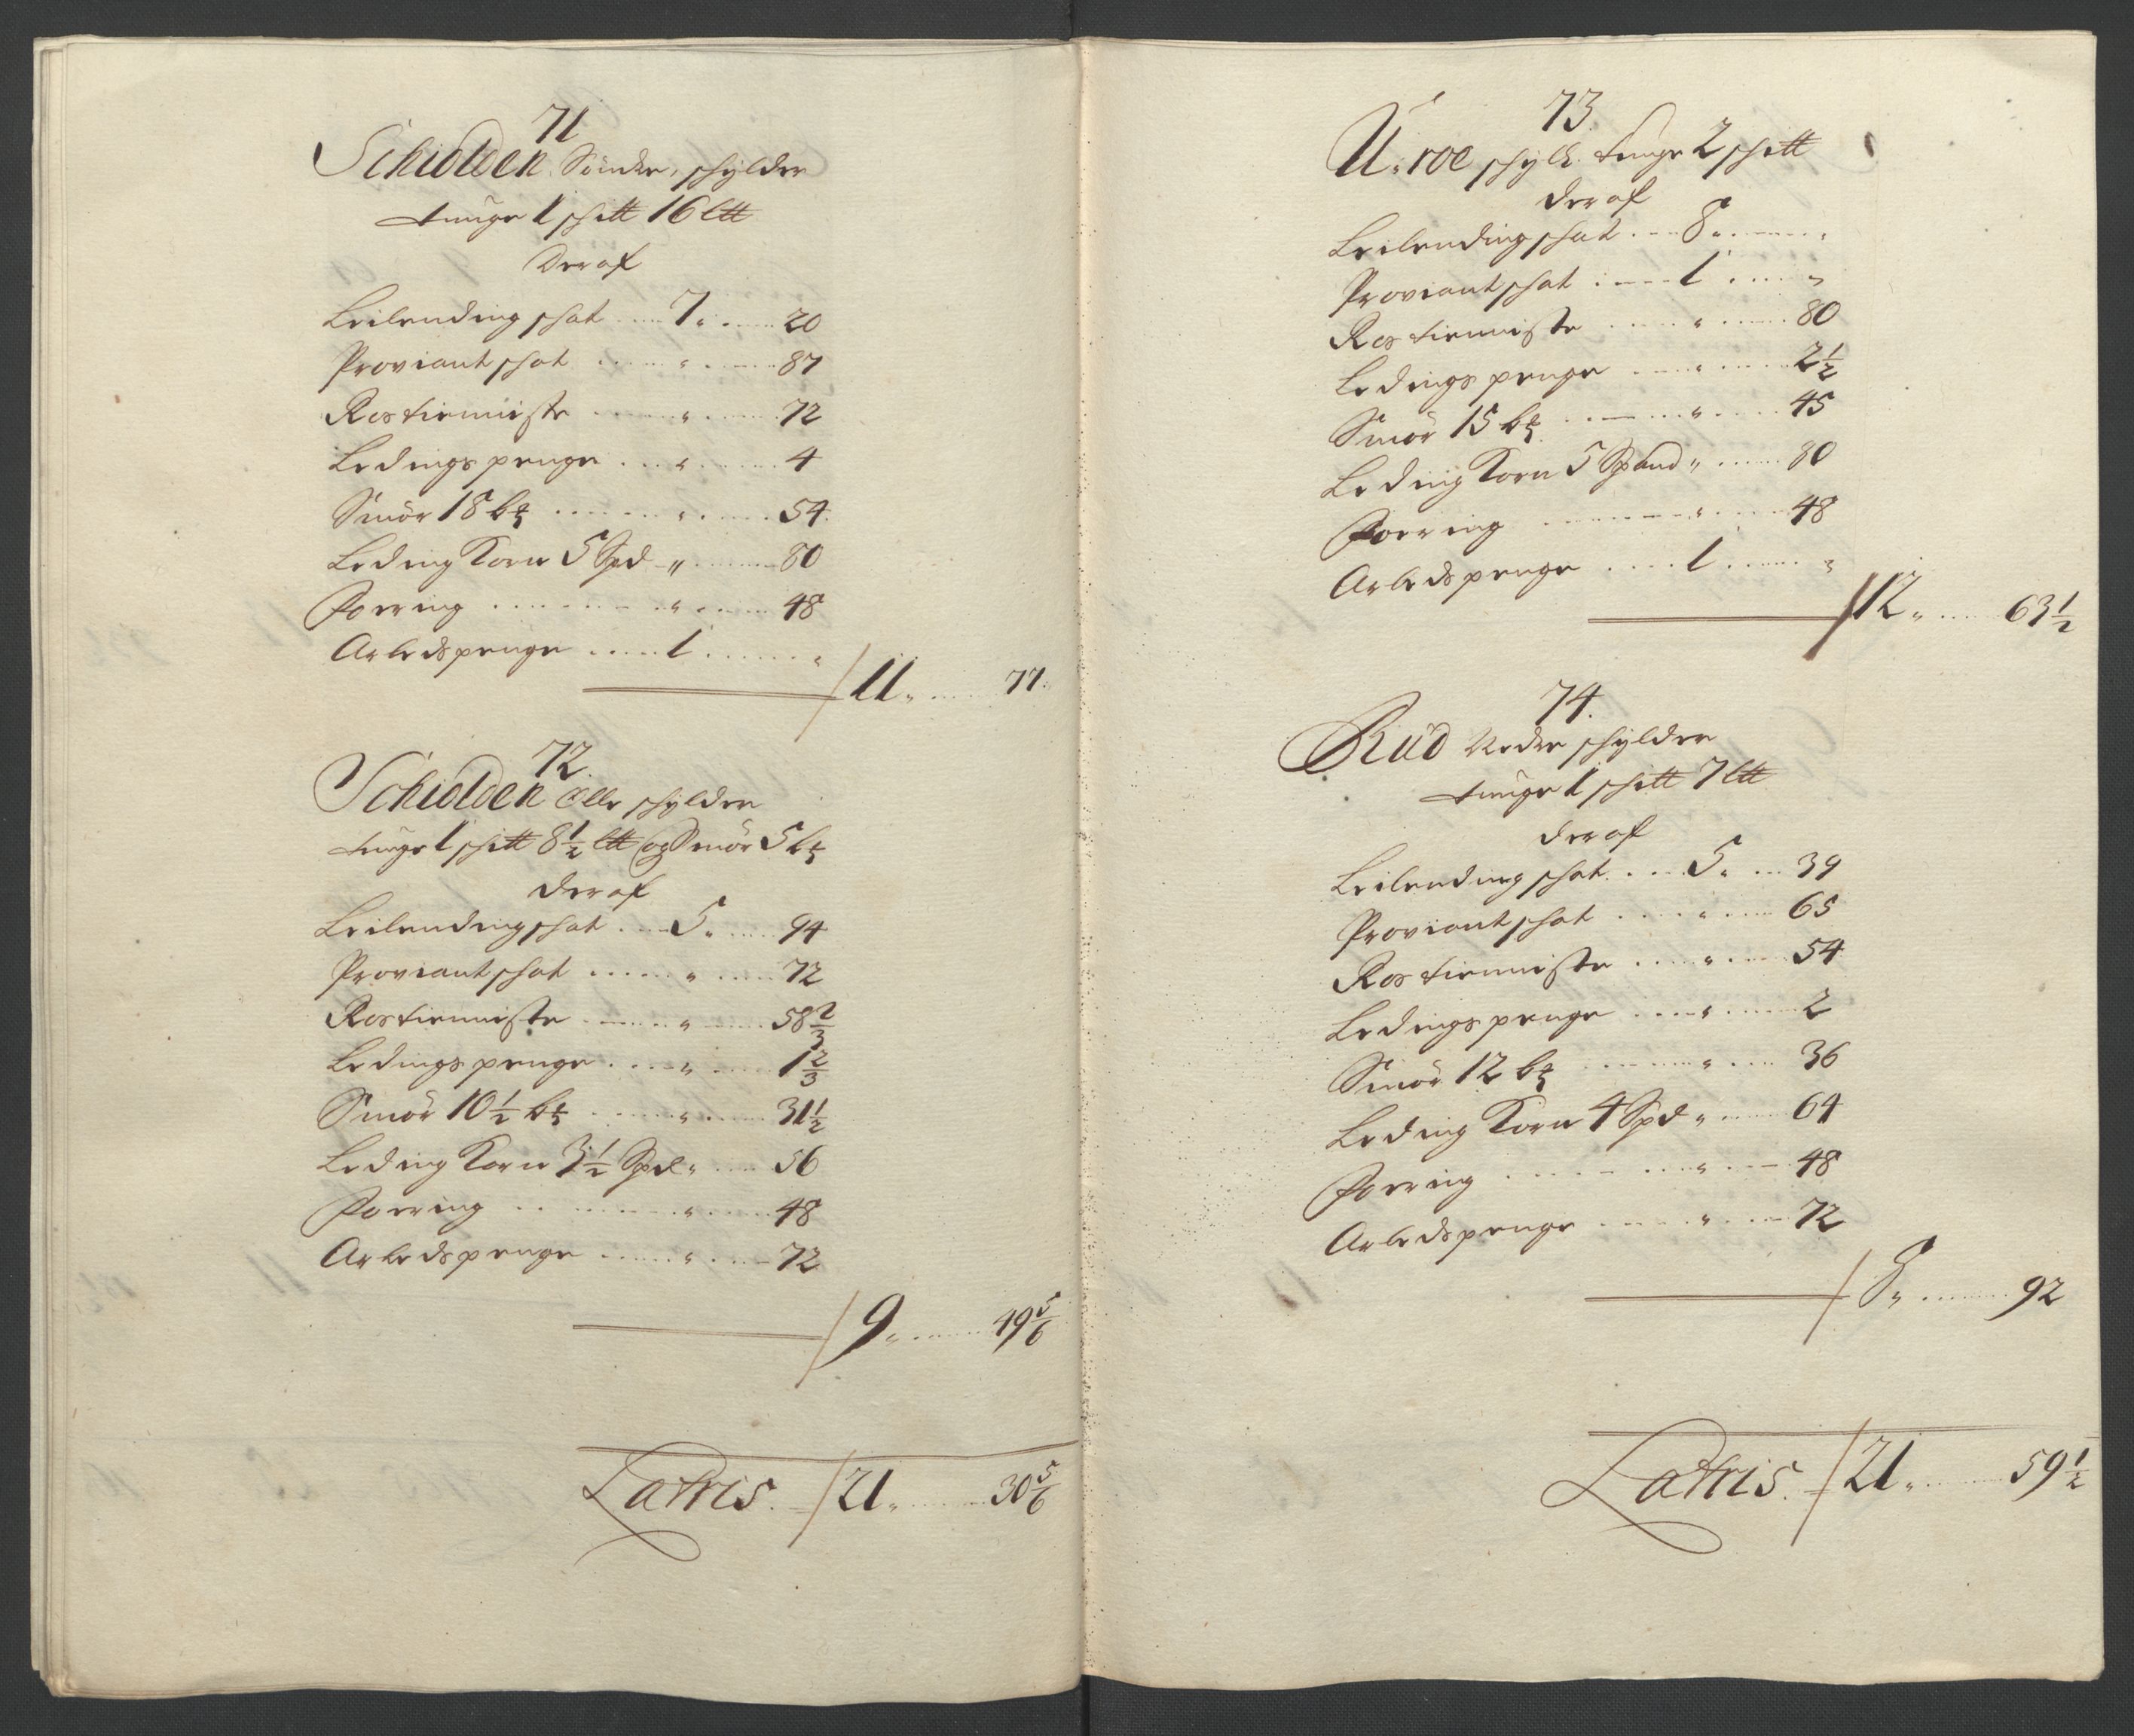 71
Schiolden Söndre, schylder
tunge 1 scht̶t̶ 16 lt̶t̶
Deraf
Leilending schat .... 7 „ .... 20
Proviant schat .... „ .... 87
Rostienniste .... „ .... 72
Ledings penge .... „ .... 4
Smör 18 bꝭ .... „ .... 54
Leding Korn 5 Spd „ .... 80
Foering .... „ .... 48
Arbedspenge .... 1 .... „
11 „ .... 77
72.
Schiolden Elle schylder
tunge 1 schtt 8½ ltt og Smör 5 bꝭ
Deraf
Leilending schat .... 5 „ .... 94
Proviant schat .... „ .... 72
Rostienniste .... „ .... 58 2/3
Ledings penge .... „ .... 1 2/3
Smör 10½ bꝭ .... „ .... 31½
Leding Korn 3½ Spd „ .... 56
Foering .... „ .... 48
Arbedspenge .... „ .... 72
9 „ .... 49 5/6
Latris. 21 „ .... 30 5/6
73.
U:roe schyld. tunge 2 schtt
Deraf
Leilending schat .... 8 „ .... „
Proviant schat .... 1 .... „
Rostienniste .... „ .... 80
Ledings penge .... „ .... 2½
Smör 15 bꝭ .... „ .... 45
Leding Korn 5 Spand „ .... 80
Foering .... „ .... 48
Arbedspenge .... 1 .... „
12 „ .... 63½
74.
Rud Nedre schylder
tunge 1 schtt 7 ltt
Deraf
Leilending schat .... 5 „ .... 39
Proviant schat .... „ .... 65
Rostienniste .... „ .... 54
Ledings penge .... „ .... 2
Smör 12 bꝭ .... „ .... 36
Leding Korn 4 Spd „ .... 64
Foering .... „ .... 48
Arbedspenge .... „ .... 72
8 „ .... 92
Latris. 21 „ .... 59½